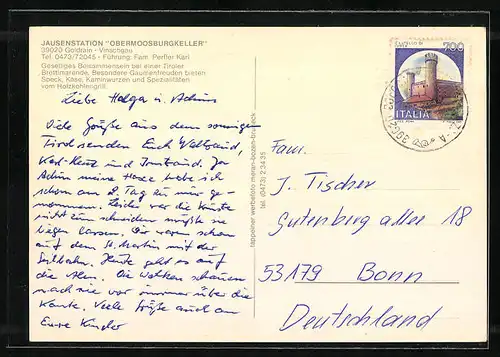 JAUSENSTATION "OBERMOOSBURGKELLER"
39020 Goldrain - Vinschgau
Tel. 0473/72045 - Führung: Fam. Perfler Karl
Geselliges Beisammensein bei einer Tiroler
Brettlmarende. Besondere Gaumenfreuden bieten
Speck, Käse, Kaminwurzen und Spezialitäten
vom Holzkohlengrill.
Liebe Helga u. Achim
Viele Grüße aus dem sonnigen
Tirol senden Euch Waltraud,
Karl-Heinz und
Achim meine Hose habe ich
schon am 2. Tag in mir ge-
nommen. Leider war die Kürste
nicht zu schneiden mußte sie
liegen lassen. Wir waren schon
auf dem St. Martin mit der
Seilbahn. Heute geht es auf
die Alm. Die Wolken schauen
nach wie vor immer über die
Kante. Viele Grüße auch an
Eure Kinder
tappeiner werbefoto meran-bozen-bruneck
tel. (0473) 2 34 35
700
ITALIA
Fam.
J. Tischer
Gutenberg allee 18
53179 Bonn
Deutschland